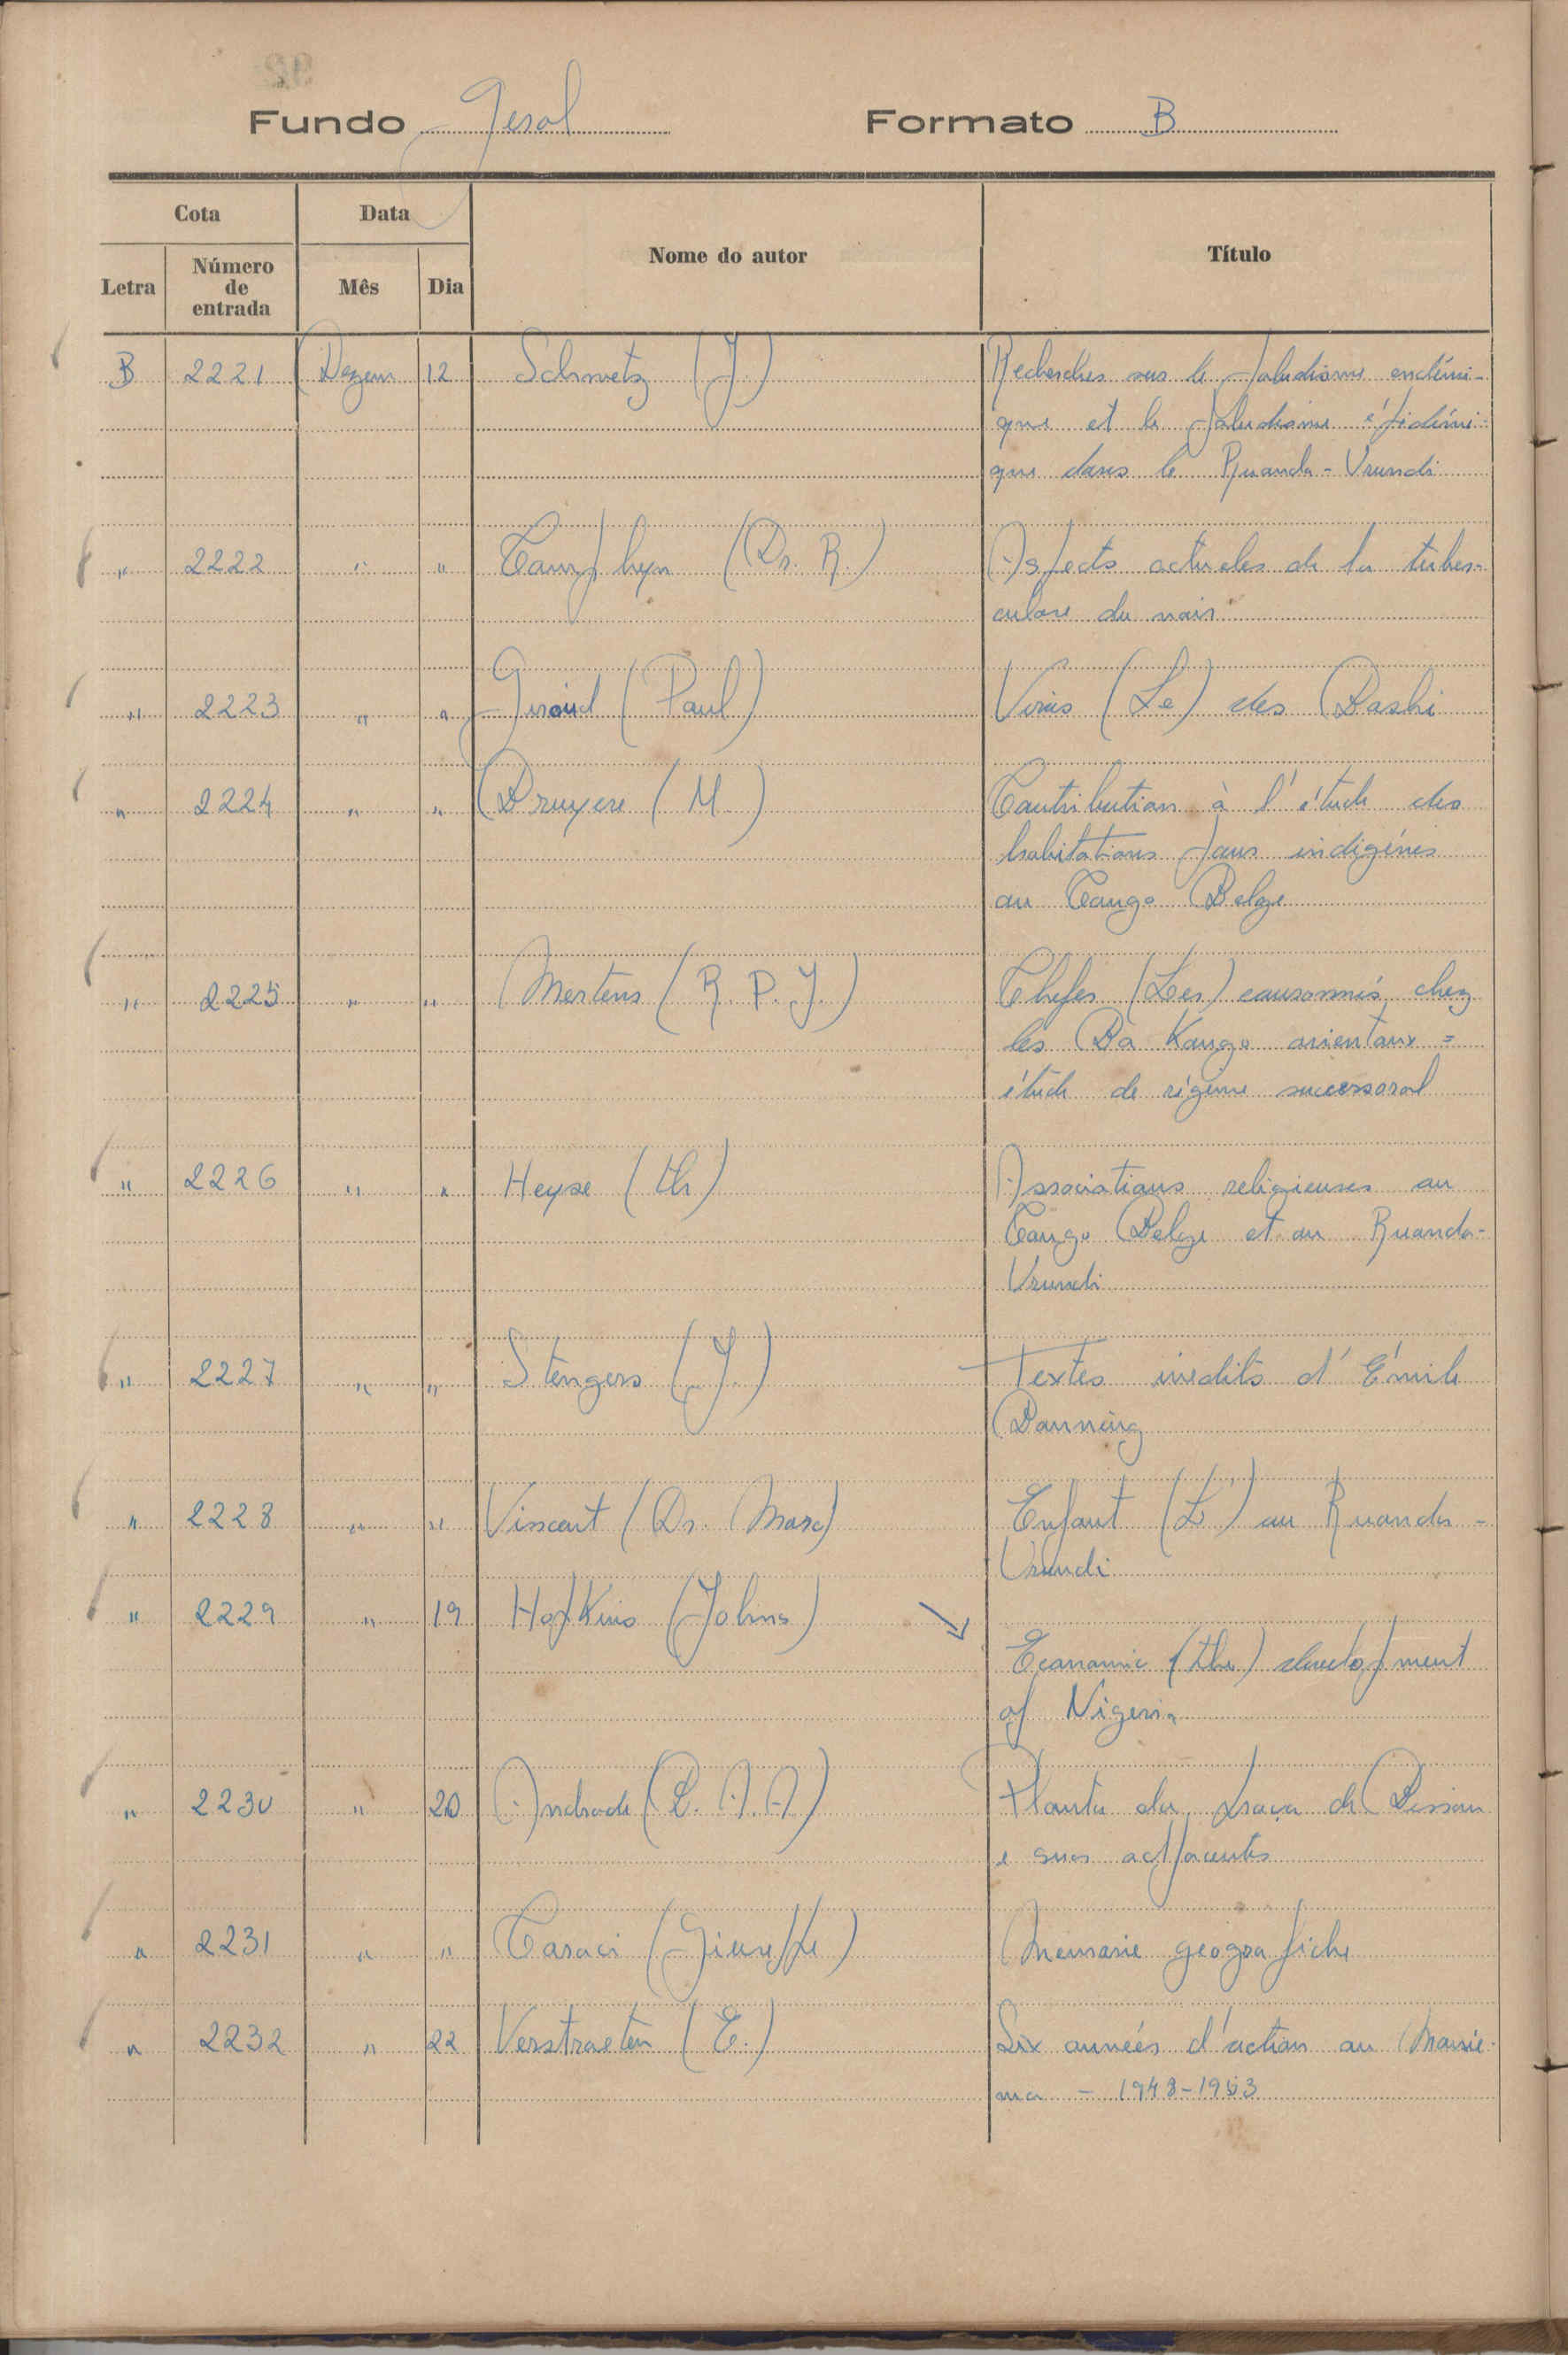 Fundo Geral Formato B
Cota Data Nome do autor Título
Letra Número de entrada Mês Dia
B 2221 Dezem 12 Schwetz (J.) Recherches sur le paludisme endémi-
que et le paludisme épidémi-
que dans le Ruanda-Urundi
" 2222 " " (Dr. R.) Aspects actueles de la tuber-
culose du noir
" 2223 " " Giroud (Paul) Virus (Le) des Bashi
" 2224 " " Bruyere (M.) Contribution à l'étude des
habitations pour indigénes
au Congo Belge
" 2225 " " Mertens (R. P. J.) Chefes (Les) couronnés, chez
les Ba Kongo orientaux =
étude de régime successoral
" 2226 " " Heyse (th) Associations religieuses au
Congo Belge et au Ruanda-
Urundi
" 2227 " " Stengers (J.) Textes inedits d'Émile
Banning
" 2228 " " Vincent (Dr. Marc) Enfant (L') au Ruanda-
Urundi
" 2229 " 19 Hopkins (Johns)
Economic (the) development
of Nigeria
" 2230 " 20 Andrade (B. A. A) Planta da praça de Bissau
e suas adjacentes
" 2231 " " Caraci (Giuseppe) Memorie geografiche
" 2232 " 22 Verstraeten (E.) Six années d'action au Manie-
ma - 1948-1953